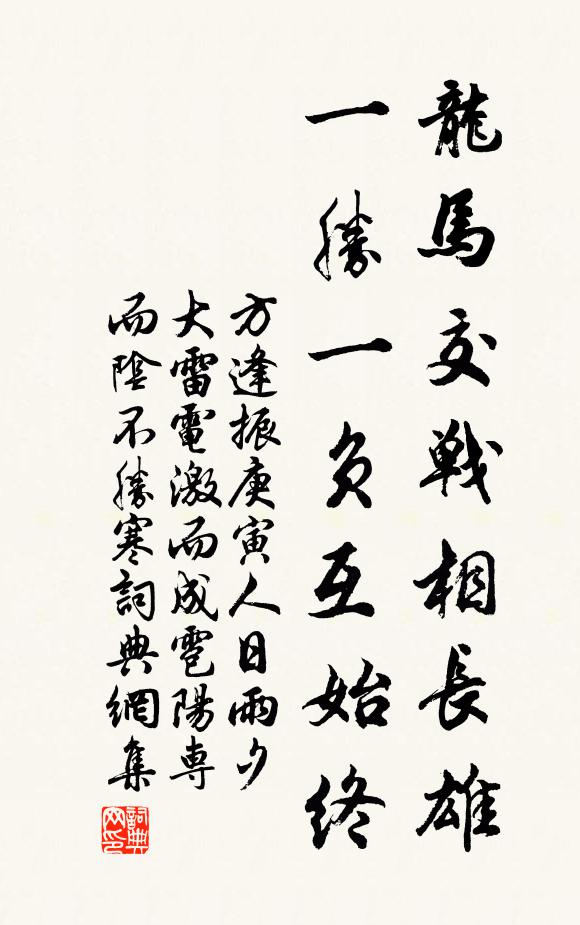 龍馬交戰相長雄
一勝一負互始終
方逢振庚寅人日雨夕
大雷電激而成雹陽專
而陰不勝寒詞典網集
詞典网印